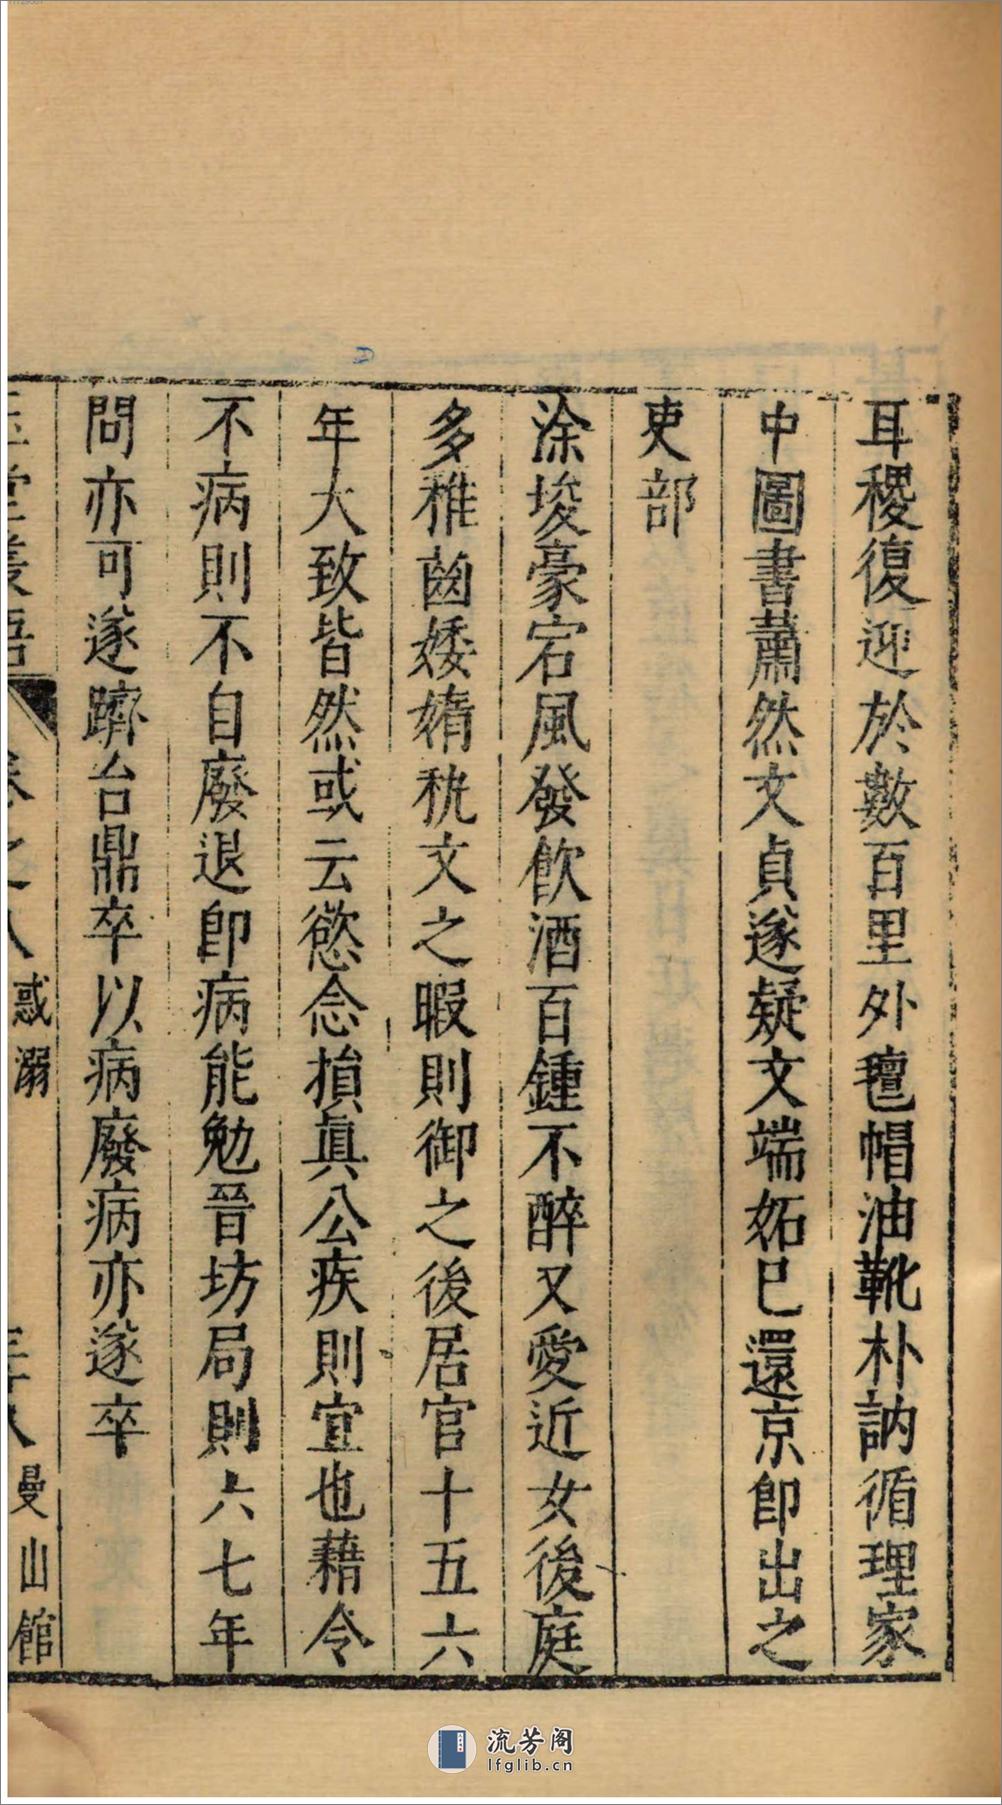 耳稷復迎於數百里外氊帽油靴朴訥循理家
中圖書蕭然文貞遂疑文端妬已還京卽出之
吏部
涂埈豪宕風發飲酒百鍾不醉又愛近女後庭
多稚齒婑媠秇文之暇則御之後居官十五六
年大致皆然或云慾念損眞公疾則宜也藉令
不病則不自廢退卽病能勉晉坊局則六七年
問亦可遂躋台鼎卒以病廢病亦遂卒
玉堂叢語 卷之八 惑溺 三十八 曼山館
流芳阁
lfglib.cn